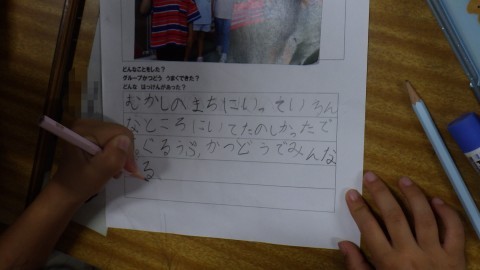 どんなことをした?
グループかつどう うまくできた?
どんな はっけんがあった?
むかしのまちにいっていろん
なところにいてたのしかったで
ぐるうぷかつどうでみんな
る